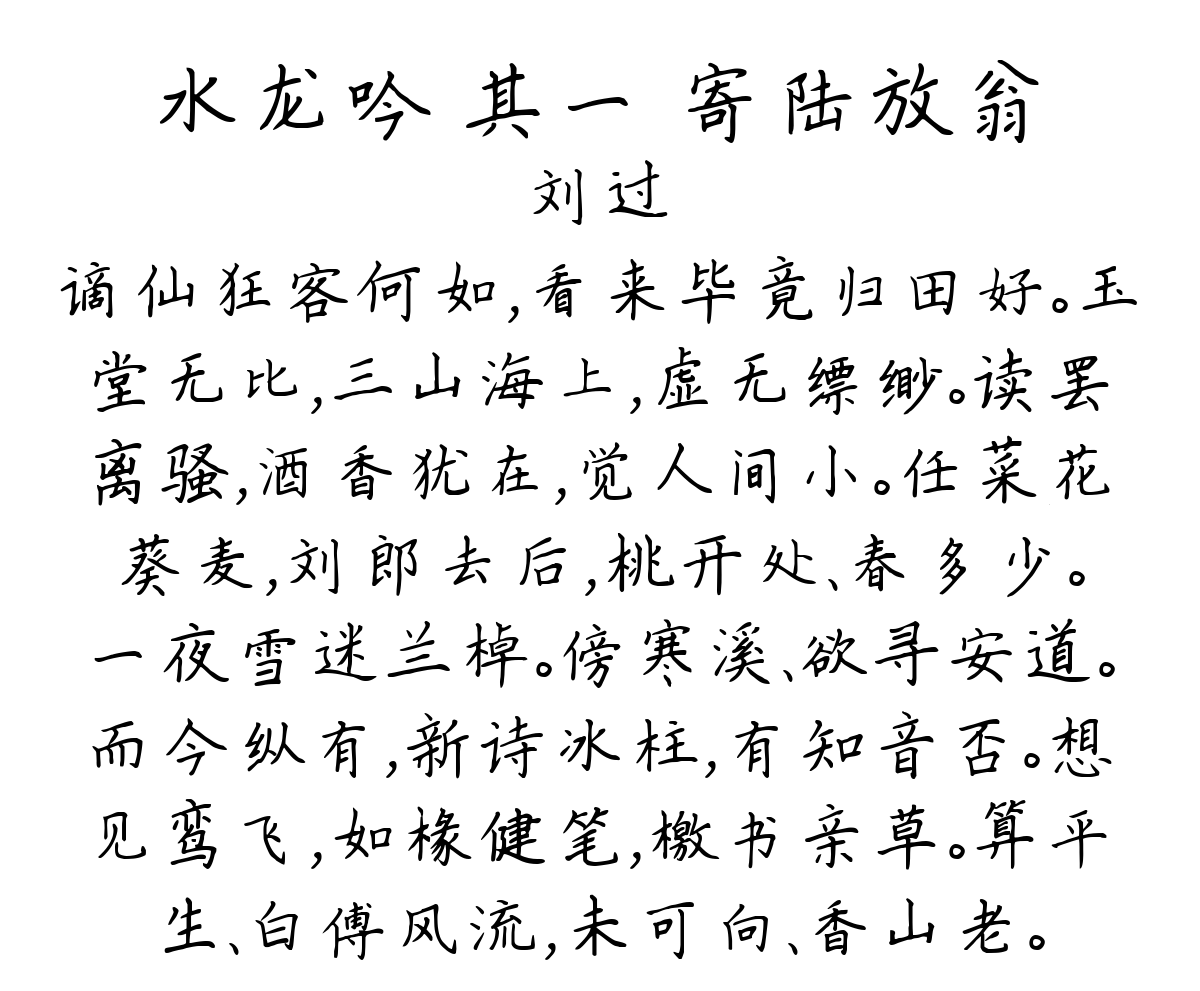 水龙吟 其一 寄陆放翁
刘过
谪仙狂客何如,看来毕竟归田好。玉
堂无比,三山海上,虚无缥缈。读罢
离骚,酒香犹在,觉人间小。任菜花
葵麦,刘郎去后,桃开处、春多少。
一夜雪迷兰棹。傍寒溪、欲寻安道。
而今纵有,新诗冰柱,有知音否。想
见鸾飞,如椽健笔,檄书亲草。算平
生、白傅风流,未可向、香山老。